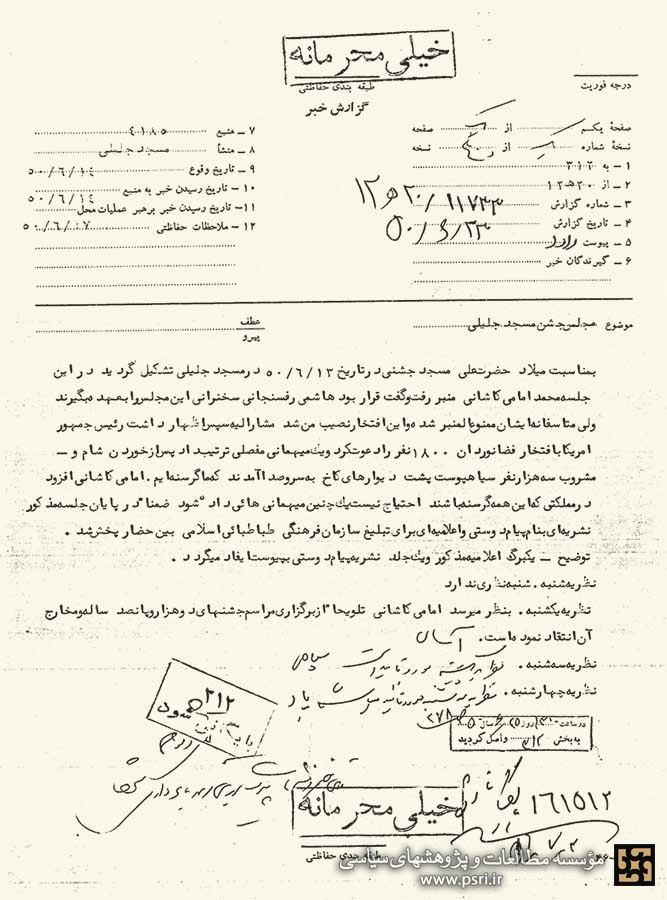 خیلی محرمانه
طبقه بندی حفاظتی
گزارش خبر
درجه فوریت
صفحهٔ یکم از صفحه
نسخهٔ شماره از نسخه
۱ ـ به ۳۱۲
۲ ـ از ۲۰ هـ ۱۲
۳ ـ شماره گزارش ۱۱۷۳۳ / ۲۰ هـ ۱۲
۴ ـ تاریخ گزارش ۵۰/۶/۲۳
۵ ـ پیوست دارد
۶ ـ گیرندگان خبر
۷ ـ منبع ۴۰۱۸۵
۸ ـ منشأ مسجد جلیلی
۹ ـ تاریخ وقوع ۵۰/۶/۱۴
۱۰ ـ تاریخ رسیدن خبر به منبع ۵۰/۶/۱۴
۱۱ ـ تاریخ رسیدن خبر برهبر عملیات محل ۵۰/۶/۱۷
۱۲ ـ ملاحظات حفاظتی
موضوع مجلس جشن مسجد جلیلی
عطف
پیرو
بمناسبت میلاد حضرت علی مسجد جشنی در تاریخ ۵۰/۶/۱۳ در مسجد جلیلی تشکیل گردید در این
جلسه محمد امامی کاشانی منبر رفت و گفت قرار بود هاشمی رفسنجانی سخنرانی این مجلس را بعهده بگیرند
ولی متأسفانه ایشان ممنوع المنبر شده و این افتخار نصیب من شد مشارالیه سپس اظهار داشت رئیس جمهور
امریکا بافتخار فضانوردان ۱۸۰۰ نفر را دعوت کرد و یک میهمانی مفصلی ترتیب داد پس از خوردن شام و ـ
مشروب سه هزار نفر سیاهپوست پشت دیوارهای کاخ به سر و صدا آمدند که ما گرسنه ایم. امامی کاشانی افزود
در مملکتی که این همه گرسنه باشند احتیاج نیست یک چنین میهمانی هائی داده شود ضمنا" در پایان جلسه مذکور
نشریه ای بنام پیام دوستی و اعلامیه ای برای تبلیغ سازمان فرهنگی طباطبائی اسلامی بین حضار پخش شد .
توضیح ـ یکبرگ اعلامیه مذکور و یک جلد نشریه پیام دوستی بپیوست ایفاد میگردد .
نظریه شنبه. شنبه نظری ندارد
نظریه یکشنبه. بنظر میرسد امامی کاشانی تلویحا" از برگزاری مراسم جشنهای دو هزار و پانصد ساله و مخارج
آن انتقاد نموده است. آسان
نظریه سه شنبه. نظریه یکشنبه مورد تأیید است
نظریه چهارشنبه. نظریه سه شنبه مورد تأیید است
در ساعت روز سال ۵۰
به بخش ۳۱۲ واصل گردید
۳۱۲
شود
خیلی محرمانه
طبقه بندی حفاظتی
۱۶۱۵۱۲
مؤسسه مطالعات و پژوهشهای سیاسی
www.psri.ir